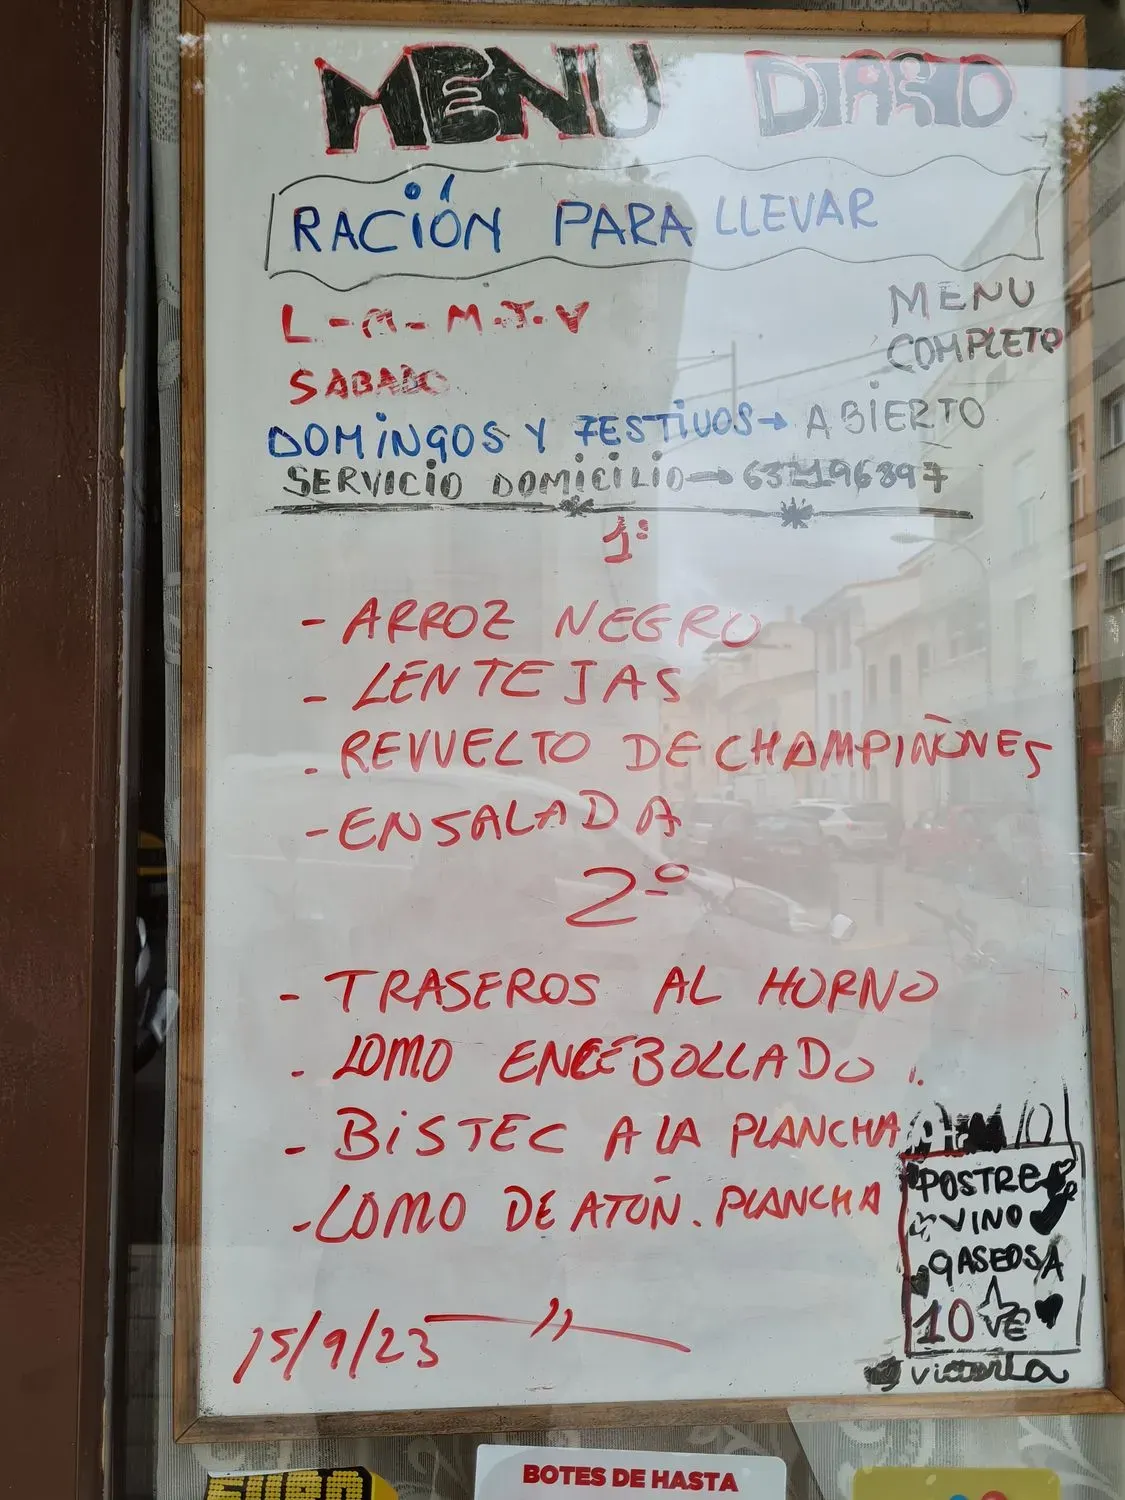 MENU DIARIO
RACIÓN PARA LLEVAR
L - M - M. T. V
MENU
COMPLETO
SABADO
DOMINGOS Y FESTIVOS → ABIERTO
SERVICIO DOMICILIO → 637196897
1º
- ARROZ NEGRO
- LENTEJAS
- REVUELTO DE CHAMPIÑONES
- ENSALADA
2º
- TRASEROS AL HORNO
- LOMO ENCEBOLLADO.
- BISTEC A LA PLANCHA
- LOMO DE ATÚN. PLANCHA
POSTRE
VINO
GASEOSA
10 €
15/9/23
BOTES DE HASTA